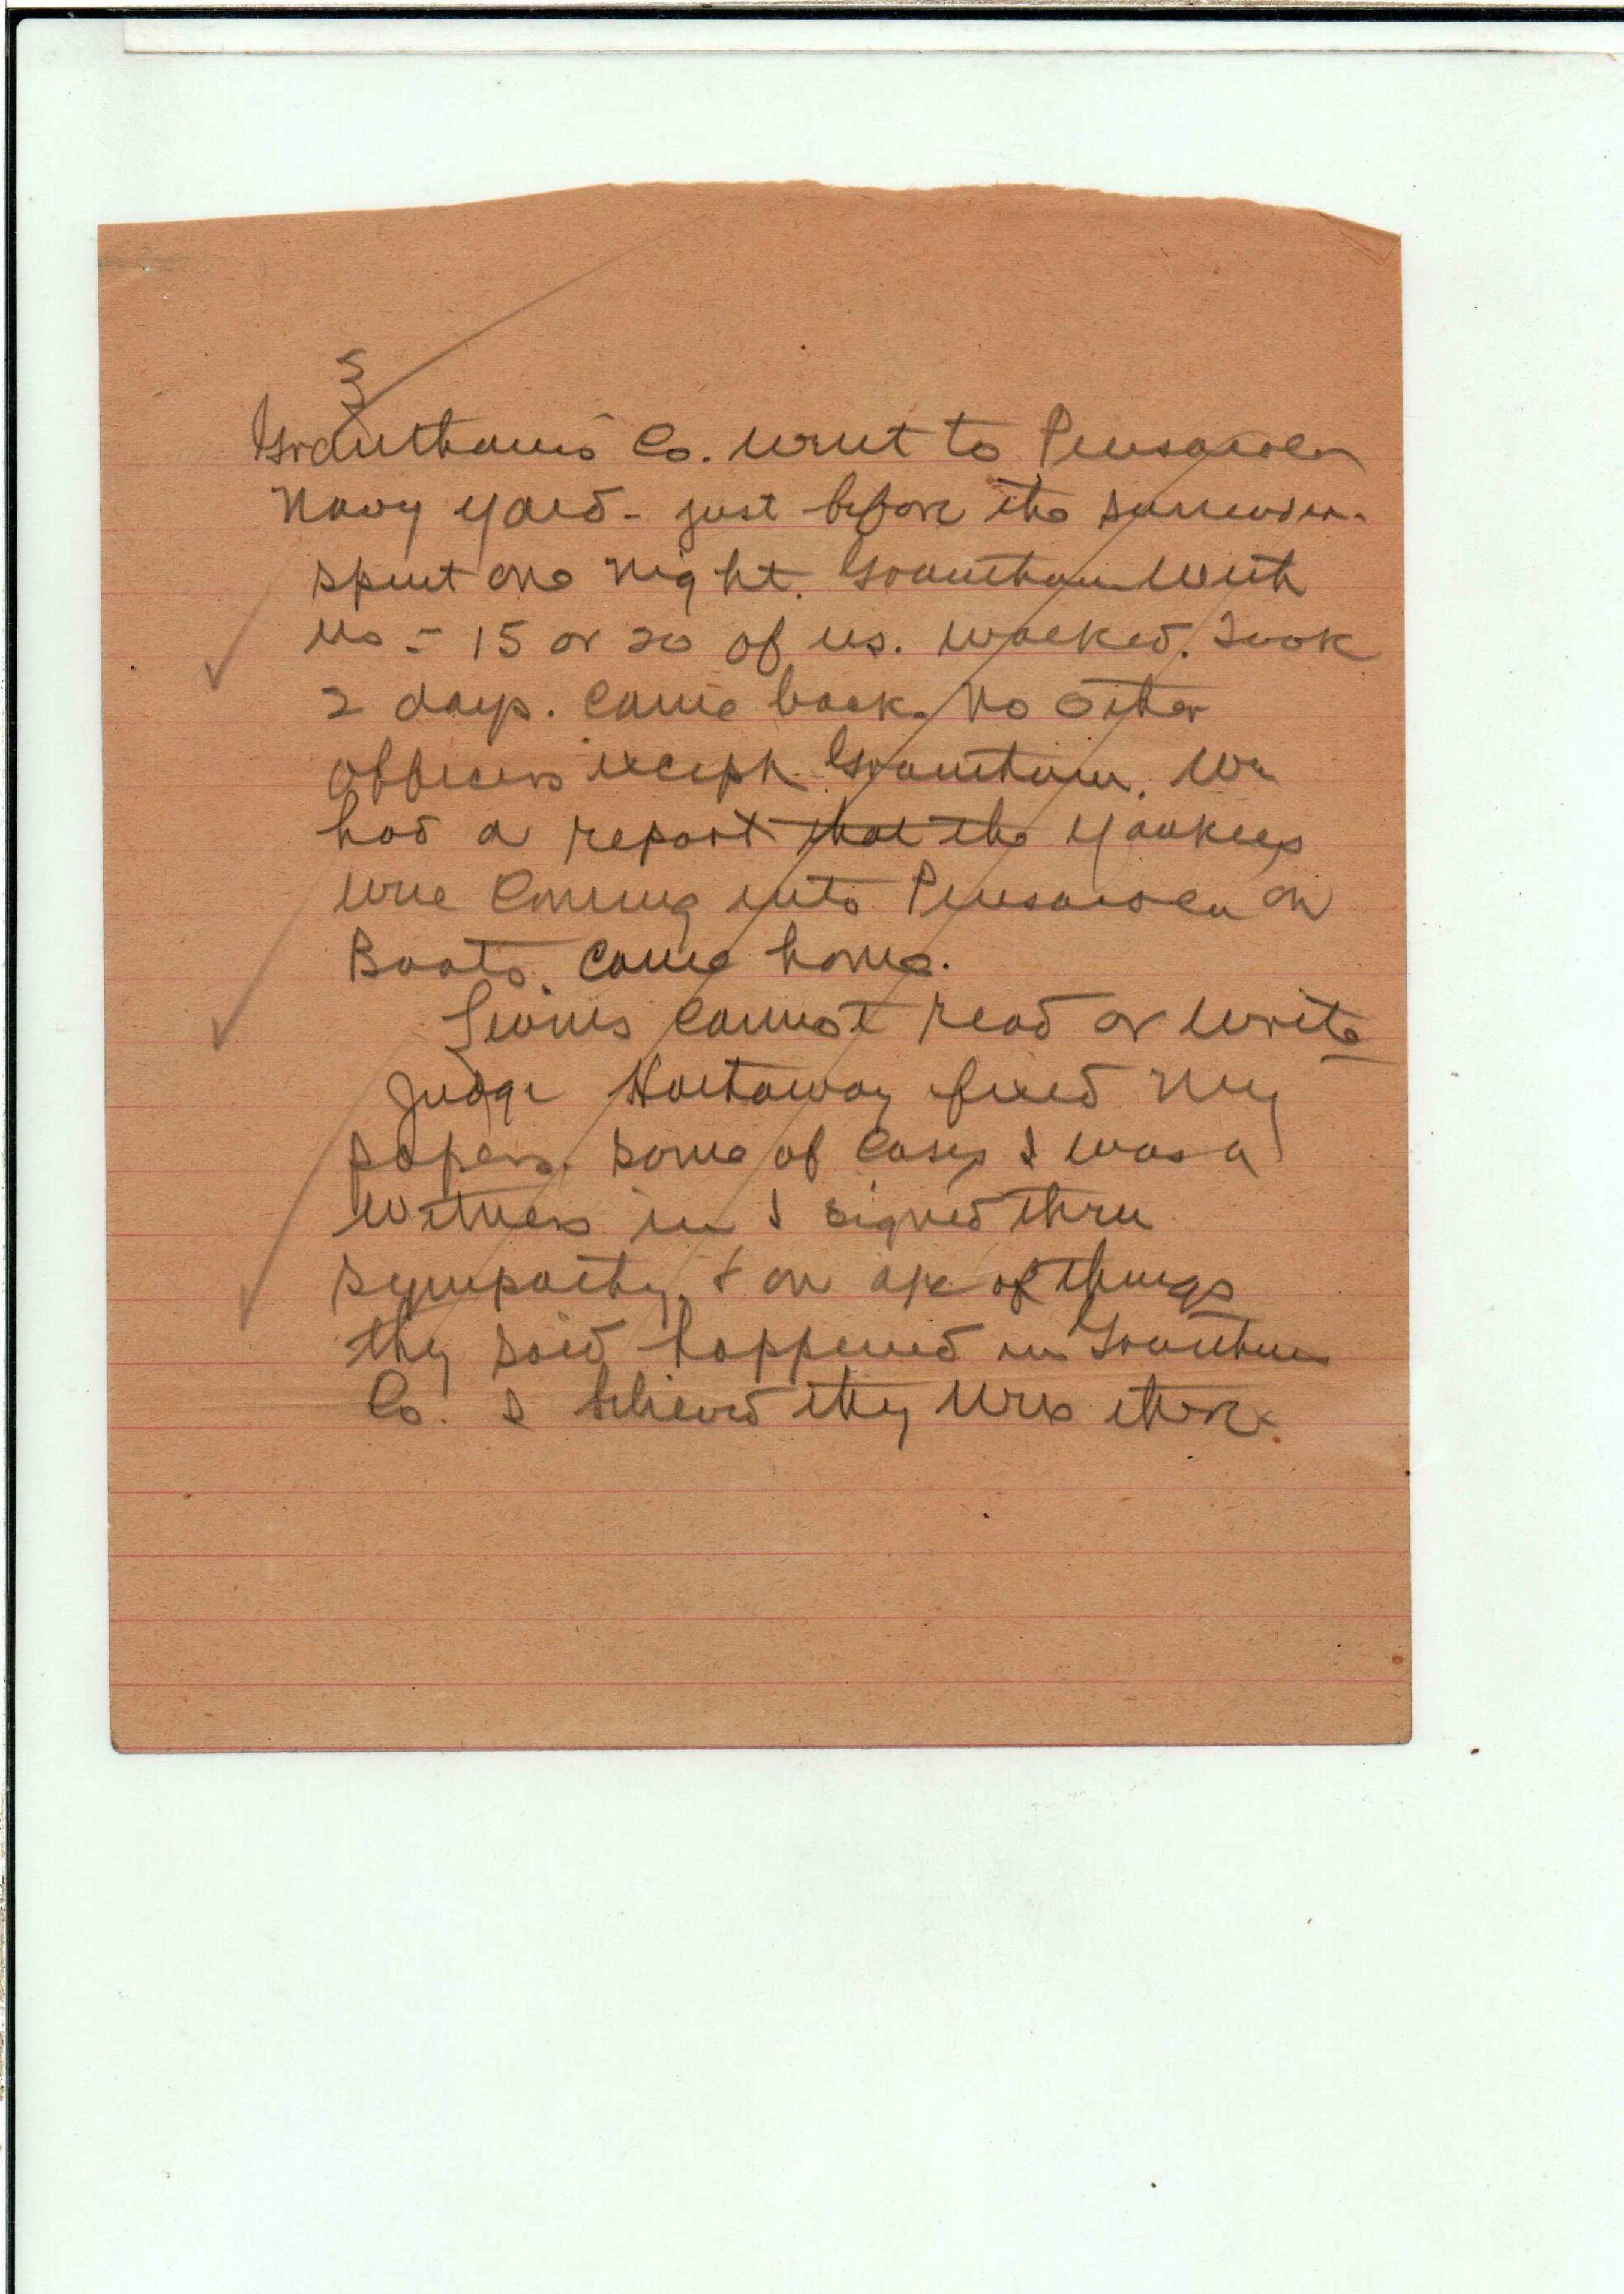 3
Grantham's Co. went to Pensacola
Navy yard - just before the surrender.
spent one night. Grantham with
us - 15 or 20 of us. walked. Took
2 days. Came back. No other
officers except Grantham. We
had a report that the Yankees
were coming into Pensacola on
Boats. Came home.
cannot read or write
Judge Hathaway fixed my
papers. Some of cases I was a
witness in I signed thru
sympathy, & on a/c of things
they said happened in Grantham
Co. I believed they were there.